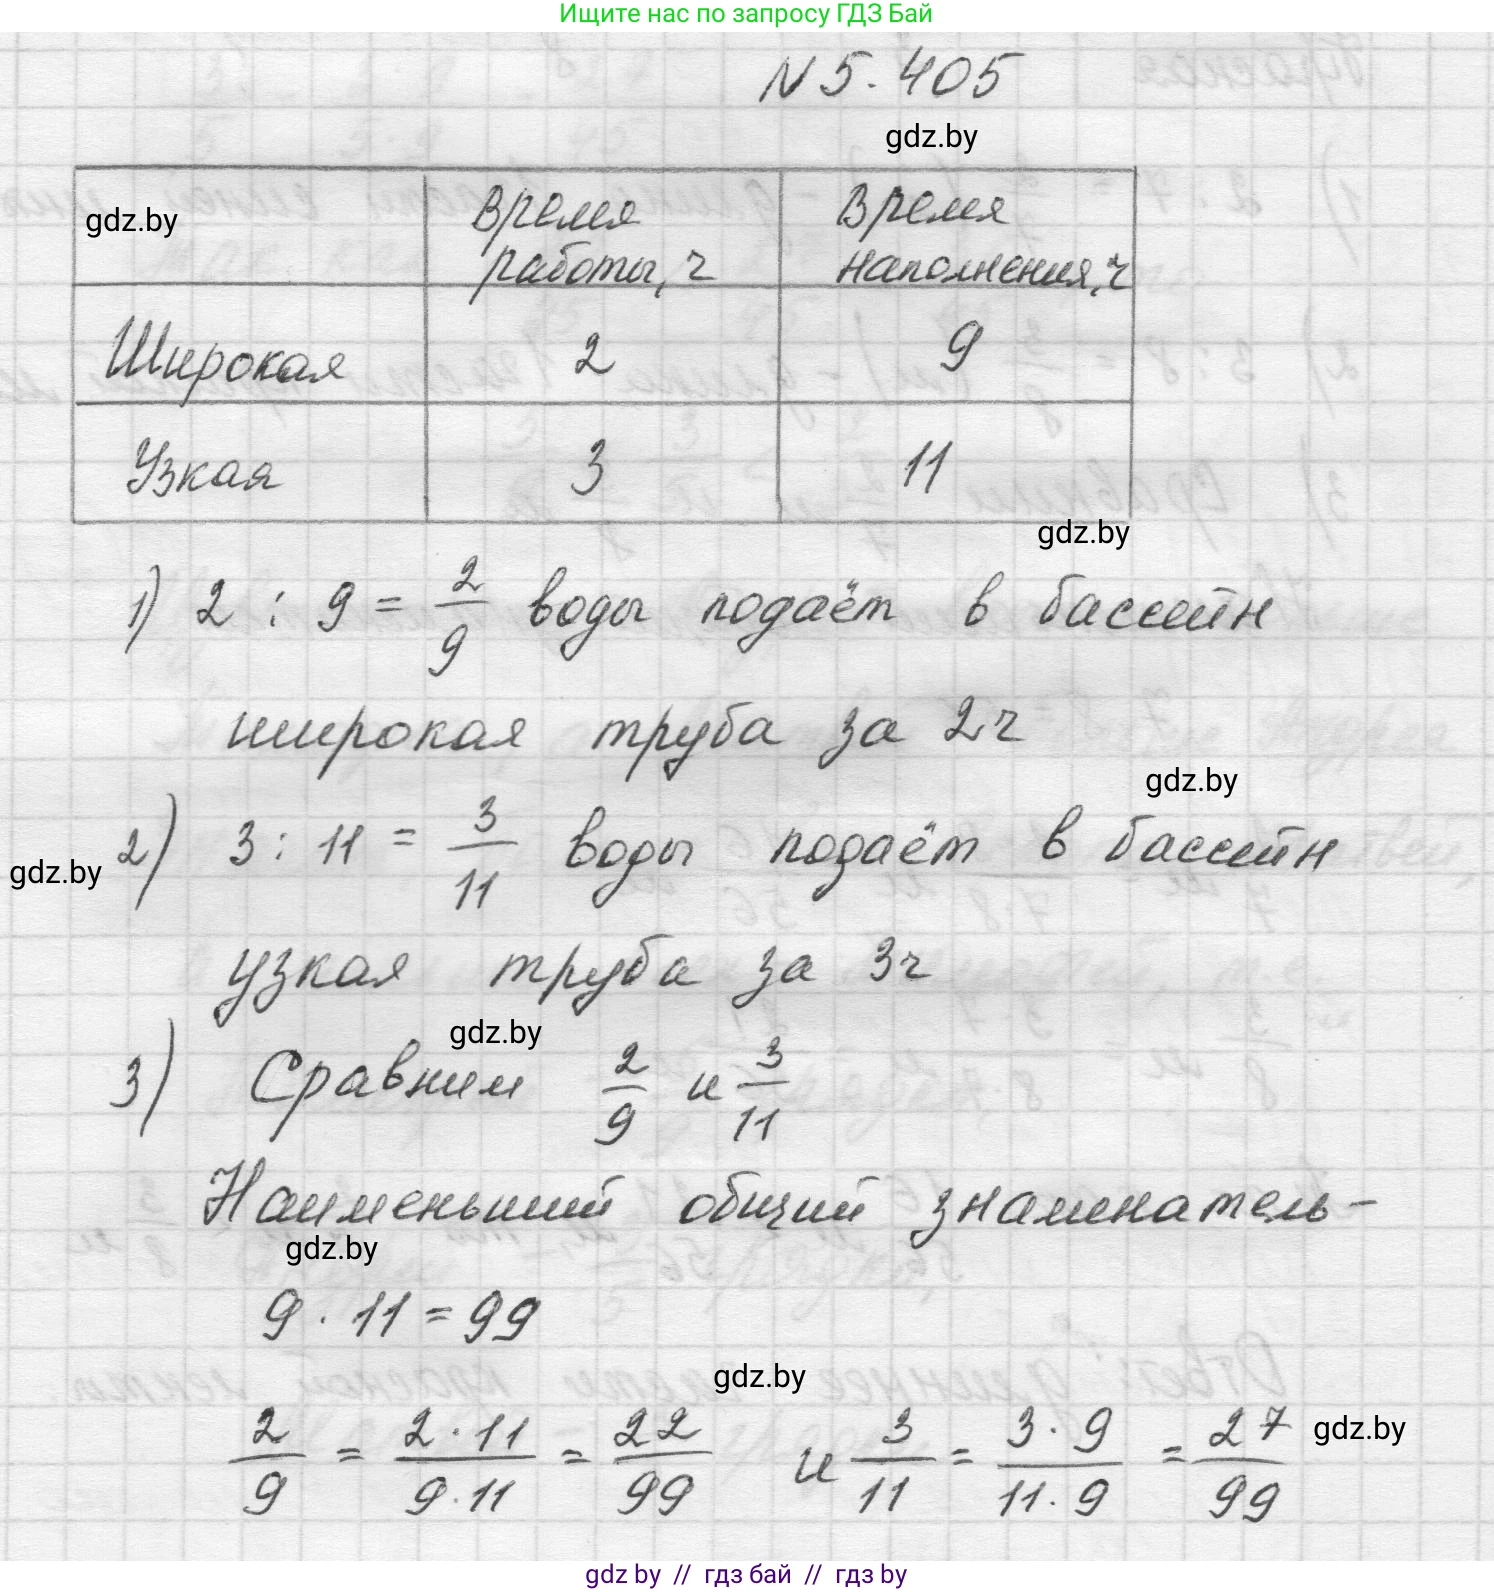 Ищите нас по запросу ГДЗ Бай
N 5.405
gdz.by
gdz.by
Время работы, ч
Время наполнения, ч
Широкая 2 9
Узкая 3 11
gdz.by
1) 2 : 9 = 2/9 воды подаёт в бассейн
широкая труба за 2ч
gdz.by
2) 3 : 11 = 3/11 воды подаёт в бассейн
gdz.by
узкая труба за 3ч
gdz.by
3) Сравним 2/9 и 3/11
Наименьший общий знаменатель -
gdz.by
9 · 11 = 99
gdz.by
2/9 = 2·11/9·11 = 22/99 и 3/11 = 3·9/11·9 = 27/99
gdz.by
gdz.by // гдз бай // gdz by